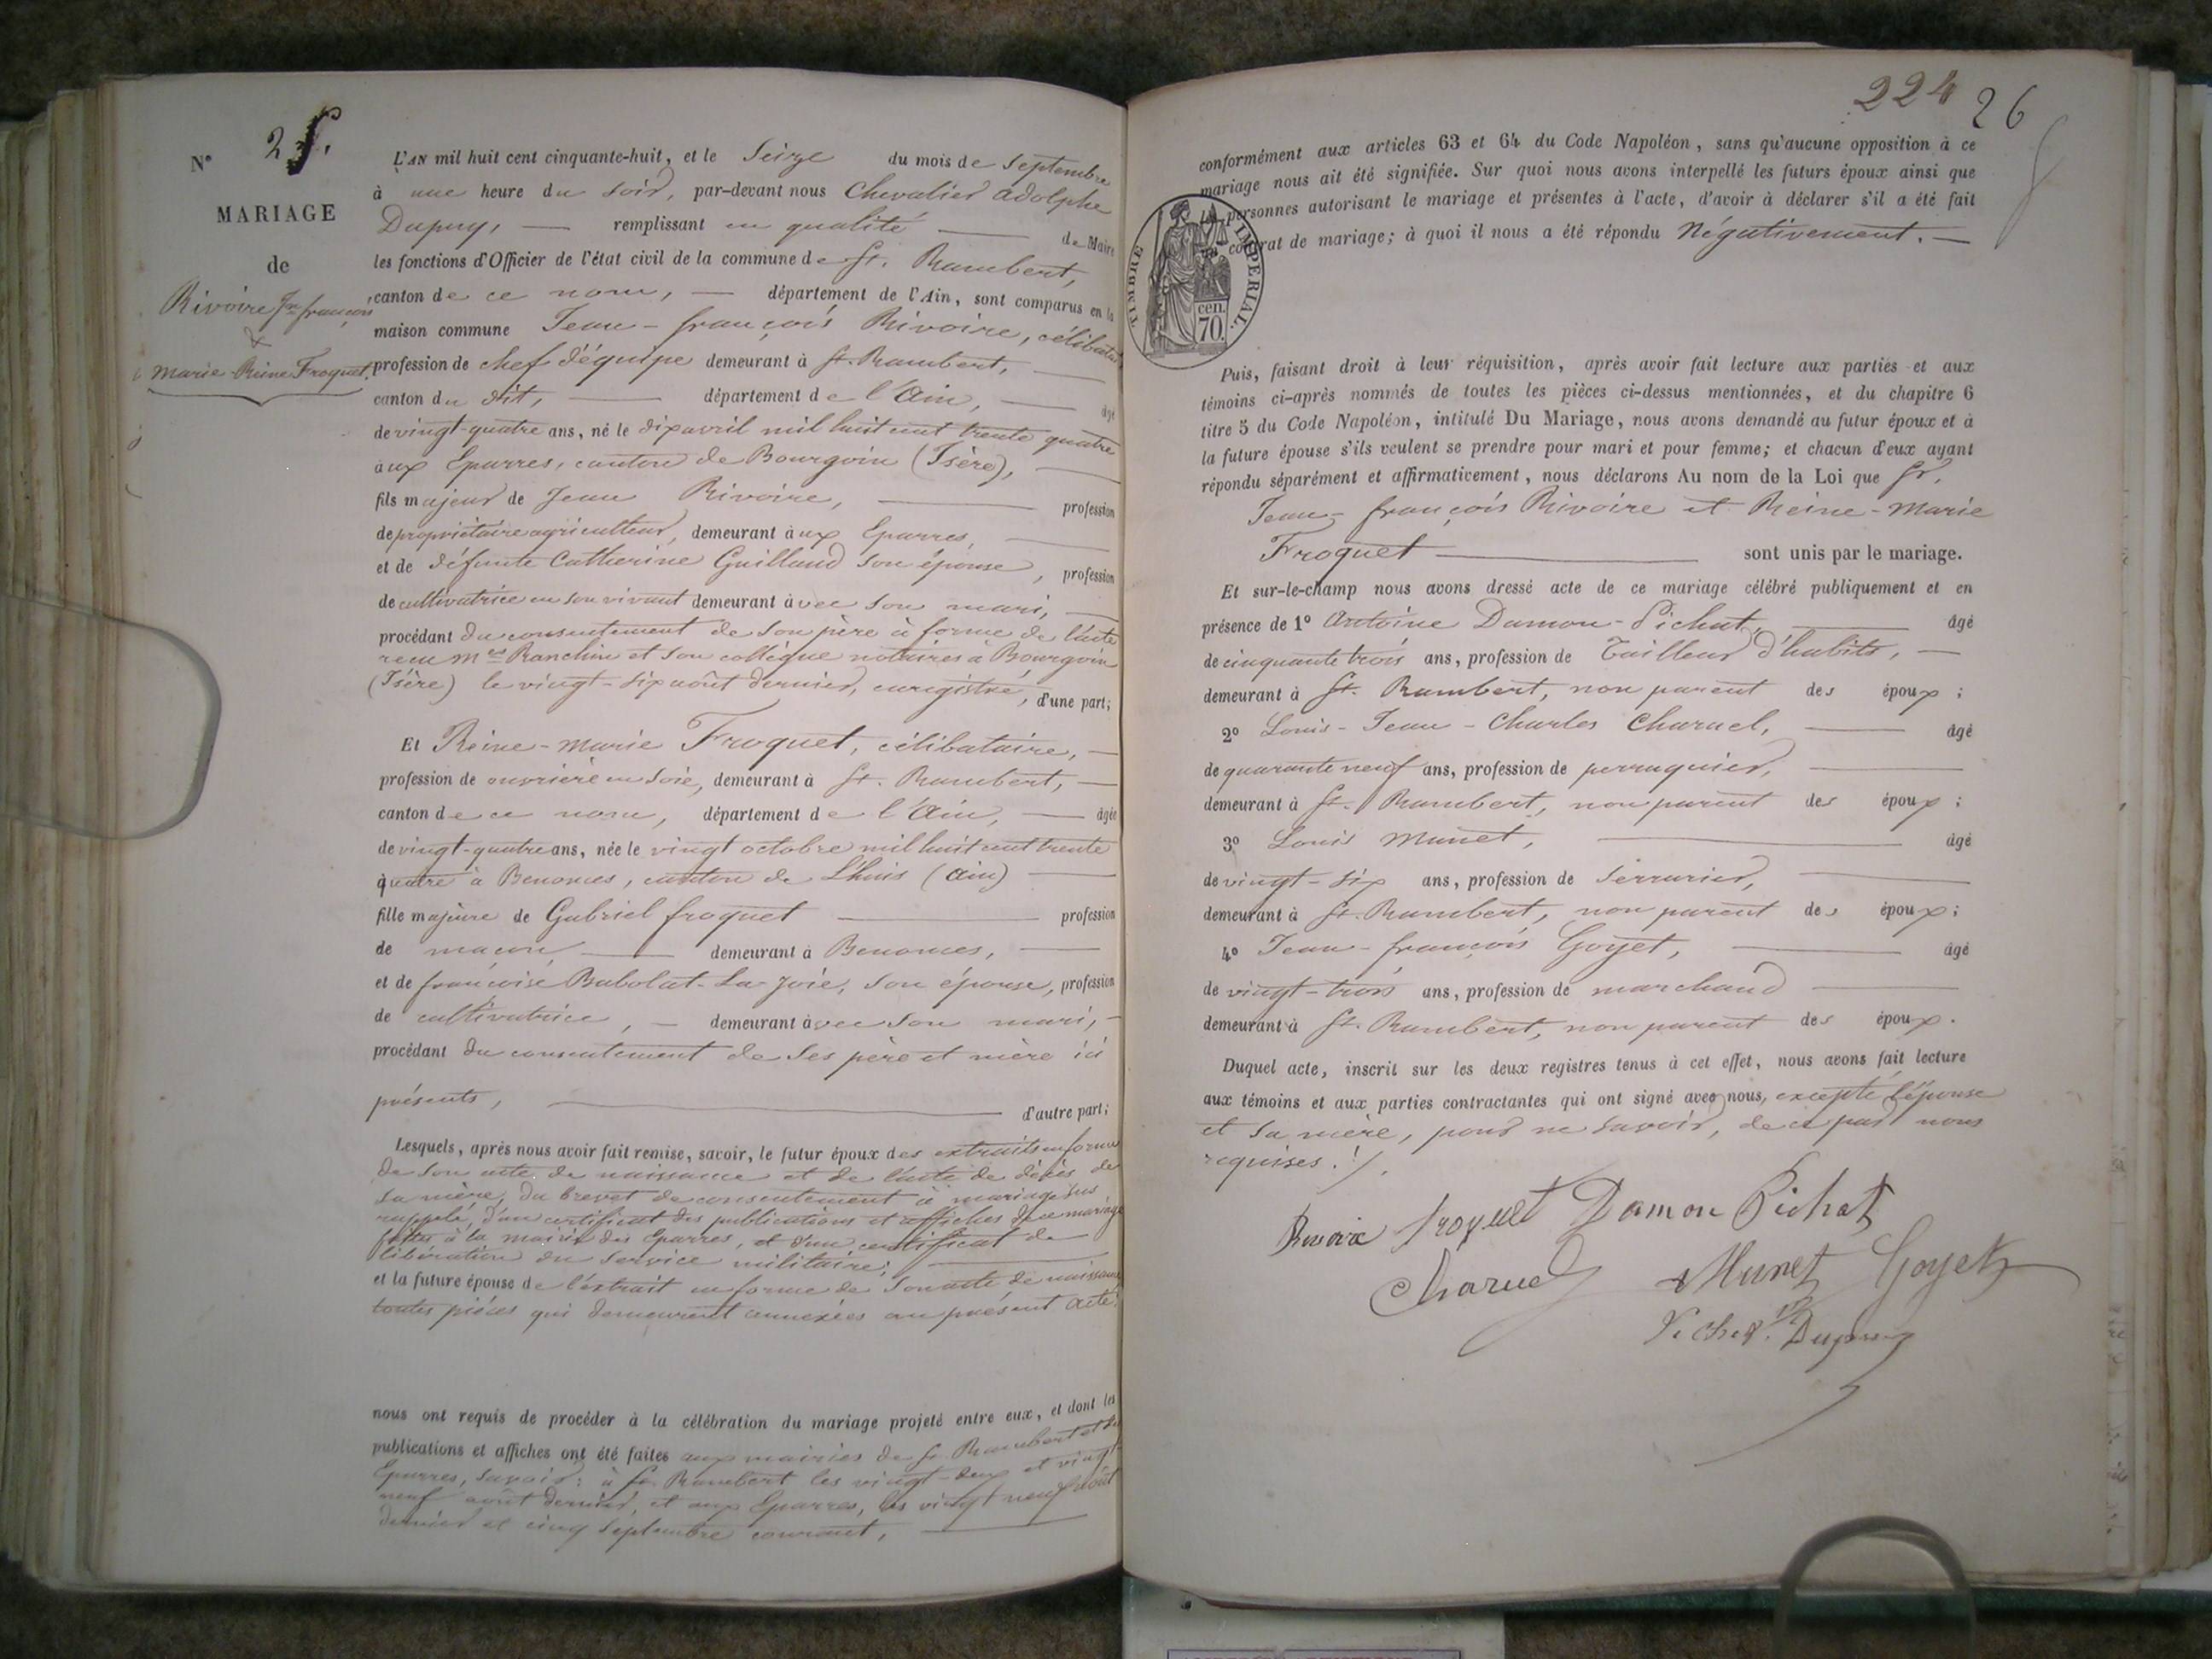 N° 25.
MARIAGE
de
Rivoire Jn françois
&
Marie-Reine Froquet.
L'AN mil huit cent cinquante-huit, et le Seize du mois de Septembre
à une heure du Soir, par-devant nous Chevalier Adolphe
Dupuy, — remplissant en qualité — de Maire
les fonctions d'Officier de l'état civil de la commune de St. Rambert,
canton de ce nom, — département de l'Ain, sont comparus en la
maison commune Jean-françois Rivoire, célibataire
profession de chef d'équipe demeurant à St. Rambert, —
canton du dit, — département de l'Ain, — âgé
de vingt-quatre ans, né le dix avril mil huit cent trente quatre
aux Eparres, canton de Bourgoin (Isère), —
fils majeur de Jean Rivoire, — profession
de propriétaire agriculteur, demeurant aux Eparres, —
et de défunte Catherine Guilland son épouse, profession
de cultivatrice en son vivant demeurant avec son mari, —
procédant du consentement de son père à forme de l'acte
reçu Mes Ranchin et son collègue notaires à Bourgoin
(Isère) le vingt-six août dernier, enregistré, d'une part;
Et Reine-Marie Froquet, célibataire, —
profession de ouvrière en soie, demeurant à St. Rambert, —
canton de ce nom, département de l'Ain, — âgée
de vingt-quatre ans, née le vingt octobre mil huit cent trente
quatre à Benonces, canton de Lhuis (Ain) —
fille majeure de Gabriel froquet — profession
de maçon — demeurant à Benonces, —
et de françoise Babolat-La-Joie, son épouse, profession
de cultivatrice, — demeurant avec son mari, —
procédant du consentement de ses père et mère ici
présents, — d'autre part;
Lesquels, après nous avoir fait remise, savoir, le futur époux des extraits en forme
de son acte de naissance et de l'acte de décès de
sa mère, du brevet de consentement à mariage sus
rappelé, d'un certificat des publications et affiches de ce mariage
faites à la mairie des Eparres, et d'un certificat de
libération du service militaire; —
et la future épouse de l'extrait en forme de son acte de naissance
toutes pièces qui demeurent annexées au présent acte.
nous ont requis de procéder à la célébration du mariage projeté entre eux, et dont les
publications et affiches ont été faites aux mairies de St. Rambert et des
Eparres, savoir: à St. Rambert les vingt-deux et vingt-
neuf août dernier, et aux Eparres, les vingt neuf août
dernier et cinq septembre courant, —
224 26
conformément aux articles 63 et 64 du Code Napoléon, sans qu'aucune opposition à ce
mariage nous ait été signifiée. Sur quoi nous avons interpellé les futurs époux ainsi que
les personnes autorisant le mariage et présentes à l'acte, d'avoir à déclarer s'il a été fait
contrat de mariage; à quoi il nous a été répondu Négativement. —
TIMBRE IMPERIAL.
cen.
70.
Puis, faisant droit à leur réquisition, après avoir fait lecture aux parties et aux
témoins ci-après nommés de toutes les pièces ci-dessus mentionnées, et du chapitre 6
titre 5 du Code Napoléon, intitulé Du Mariage, nous avons demandé au futur époux et à
la future épouse s'ils veulent se prendre pour mari et pour femme; et chacun d'eux ayant
répondu séparément et affirmativement, nous déclarons Au nom de la Loi que Sr.
Jean-françois Rivoire et Reine-Marie
Froquet — sont unis par le mariage.
Et sur-le-champ nous avons dressé acte de ce mariage célébré publiquement et en
présence de 1° Antoine Damon-Pichat, — âgé
de cinquante trois ans, profession de Tailleur d'habits, —
demeurant à St. Rambert, non parent des époux;
2° Louis-Jean-Charles Charuel, — âgé
de quarante neuf ans, profession de perruquier, —
demeurant à St. Rambert, non parent des époux;
3° Louis Munet, — âgé
de vingt-six ans, profession de Serrurier, —
demeurant à St. Rambert, non parent des époux;
4° Jean-françois Goyet, — âgé
de vingt-trois ans, profession de marchand —
demeurant à St. Rambert, non parent des époux.
Duquel acte, inscrit sur les deux registres tenus à cet effet, nous avons fait lecture
aux témoins et aux parties contractantes qui ont signé avec nous, excepté l'épouse
et sa mère, pour ne savoir, de ce par nous
requises.
Rivoire froquet Damon Pichat
Charuel Munet Goyet
Dupuy